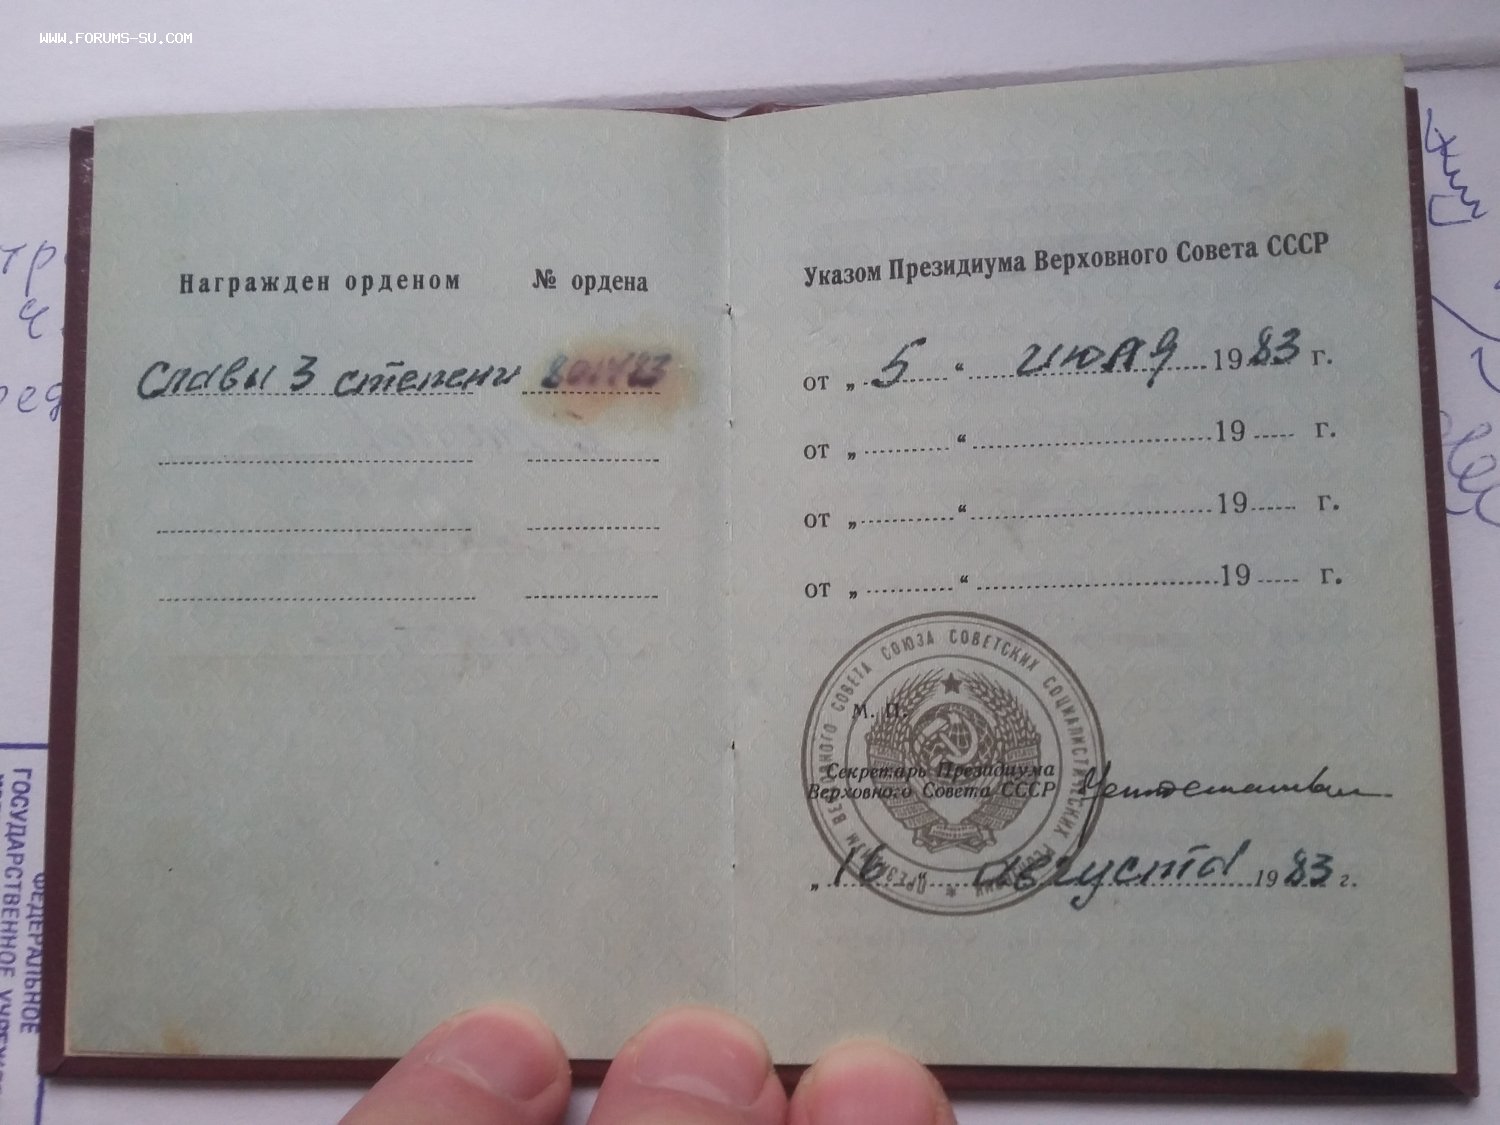 WWW.FORUMS-SU.COM
Награжден орденом № ордена
Славы 3 степени
Указом Президиума Верховного Совета СССР
от „ 5 “ июля 1983 г.
от „ “ 19 г.
от „ “ 19 г.
от „ “ 19 г.
ПРЕЗИДИУМ ВЕРХОВНОГО СОВЕТА СОЮЗА СОВЕТСКИХ СОЦИАЛИСТИЧЕСКИХ РЕСПУБЛИК
М. П.
Секретарь Президиума
Верховного Совета СССР
„ 16 “ августа 1983 г.
ФЕДЕРАЛЬНОЕ
ГОСУДАРСТВЕННОЕ